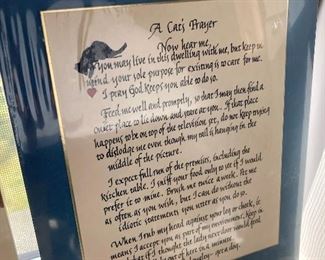 A Cat's Prayer
Now hear me,
you may live in this dwelling with me, but keep in
mind your sole purpose for existing is to care for me.
I pray God keeps you able to do so.
Feed me well and promptly, so that I may then find a
quiet place to lie down and stare at you. If that place
happens to be on top of the television set, do not keep trying
to dislodge me even though my tail is hanging in the
middle of the picture.
I expect full run of the premises, including the
kitchen table. I sniff your food only to see if I would
prefer it to mine. Brush me twice a week. Pet me
as often as you wish, but I can do without the
idiotic statements you utter as you do so.
When I rub my head against your leg or cheek, it
means I accept you as part of my environment. Keep in
if I thought the lady next door would feed
out of here in a minute.